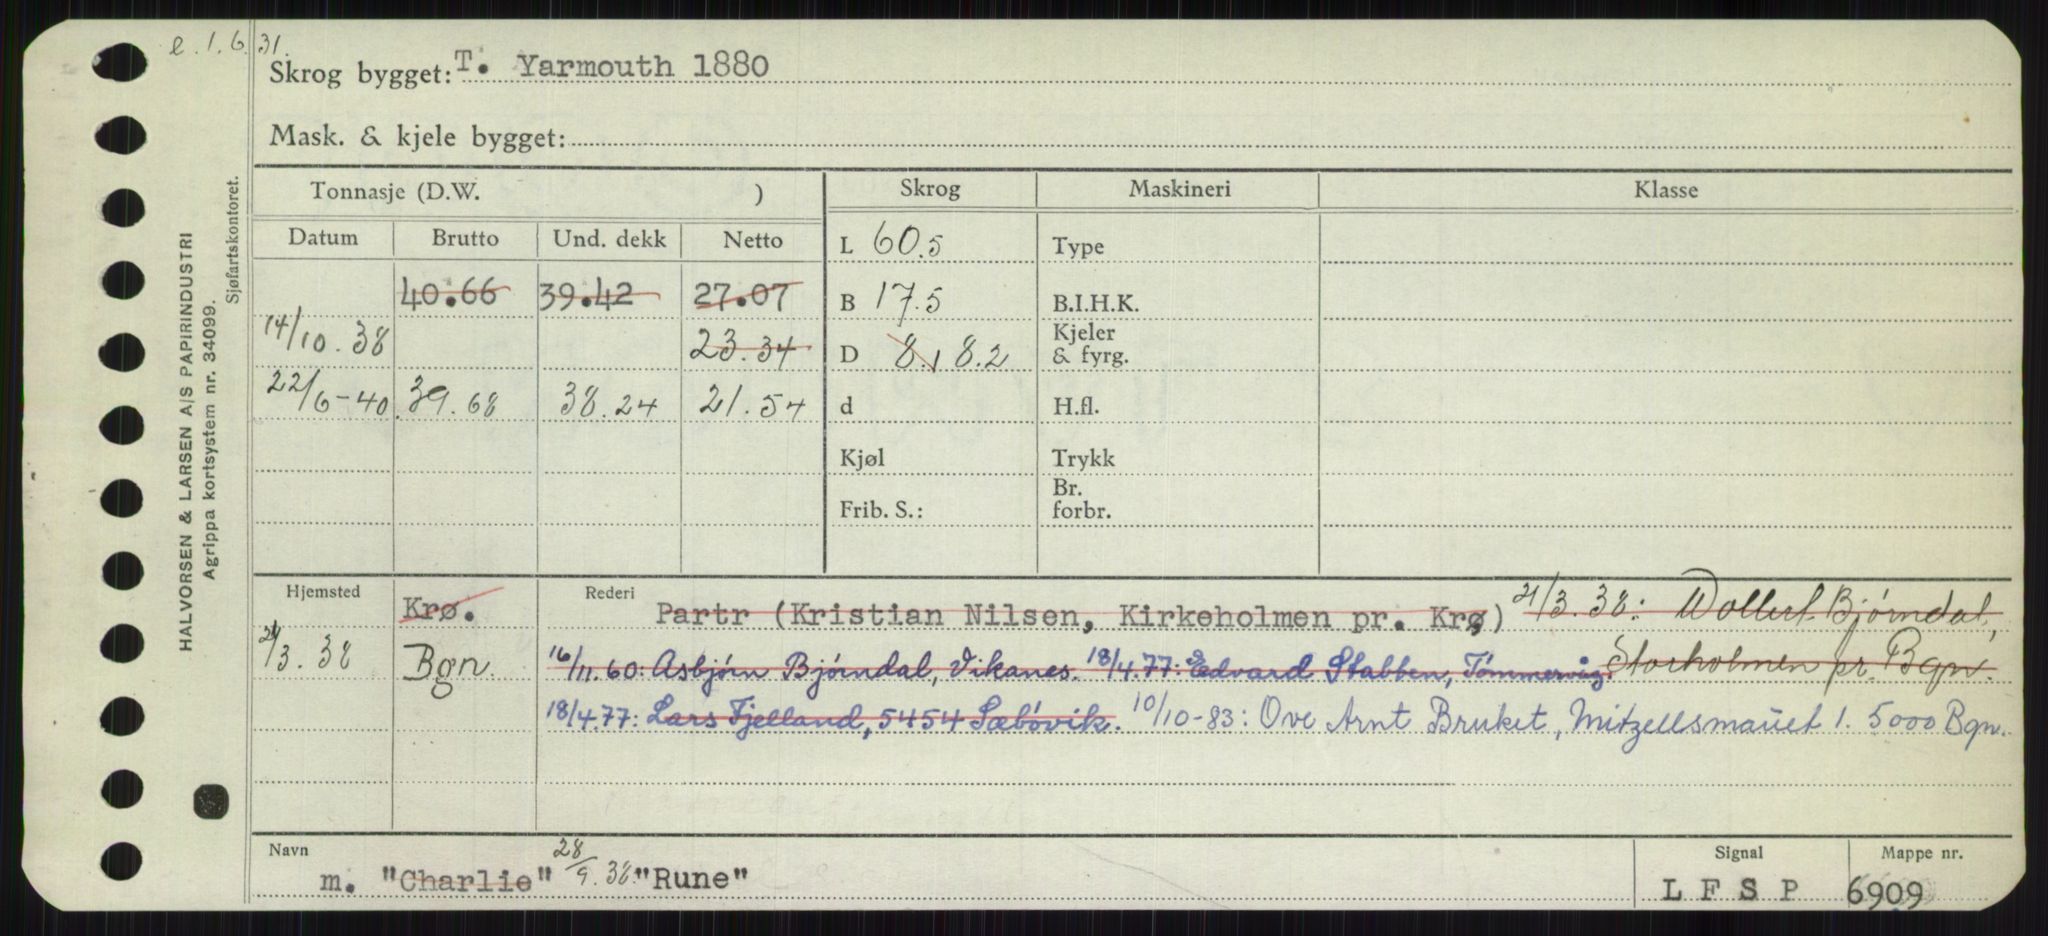 e. 1. 6. 31.
Skrog bygget: T. Yarmouth 1880
Mask. & kjele bygget:
Tonnasje (D.W. )
Skrog
Maskineri
Klasse
Datum Brutto Und. dekk Netto
L 60.5
Type
40.66 39.42 27.07
B 17.5
B.I.H.K.
14/10. 38 23.34
D 8.1 8.2
Kjeler
& fyrg.
22/6-40. 39.68 38.24 21.54
d
H.fl.
Kjøl
Trykk
Frib. S.:
Br.
forbr.
Hjemsted Krø.
Rederi Partr (Kristian Nilsen, Kirkeholmen pr. Krø) 21/3. 38: Wollert Bjørndal,
21/3. 38 Bgn.
16/11.60: Asbjørn Bjørndal, Vikanes. 18/4.77: Edvard Stabben, Tømmervåg. Storholmen pr. Bgn.
18/4.77: Lars Fjelland, 5454 Sæbøvik. 10/10-83: Ove Arnt Bruket, Mitzellsmauet 1. 5000 Bgn.
Navn m. "Charlie" 28/9. 38. "Rune"
Signal L F S P
Mappe nr. 6909
HALVORSEN & LARSEN A/S PAPIRINDUSTRI
Agrippa kortsystem nr. 34099.
Sjøfartskontoret.